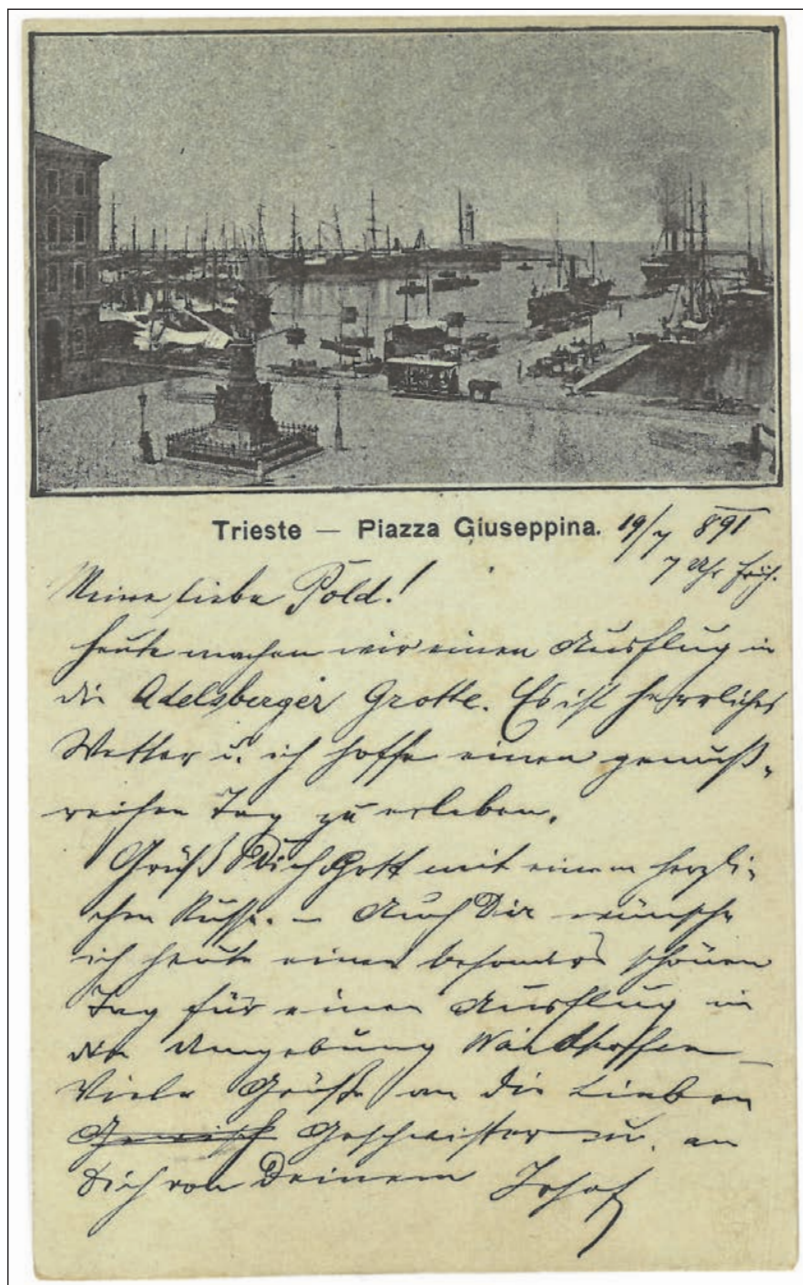 Trieste — Piazza Giuseppina. 19/7 891
7 Uhr früh.
Meine liebe Pold.!
Heute machen wir einen Ausflug in
die Adelsberger Grotte. Es ist herrliches
Wetter u. ich hoffe einen genuß-
reichen Tag zu erleben.
Grüß Dich Gott mit einem herzli-
chen Kusse. — Auch Dir wünsche
ich heute einen besonders schönen
Tag für einen Ausflug in
die Umgebung Waidhofen
Viele Grüße an die Lieben
Geschwister u. an
Dich von Deinem Josef